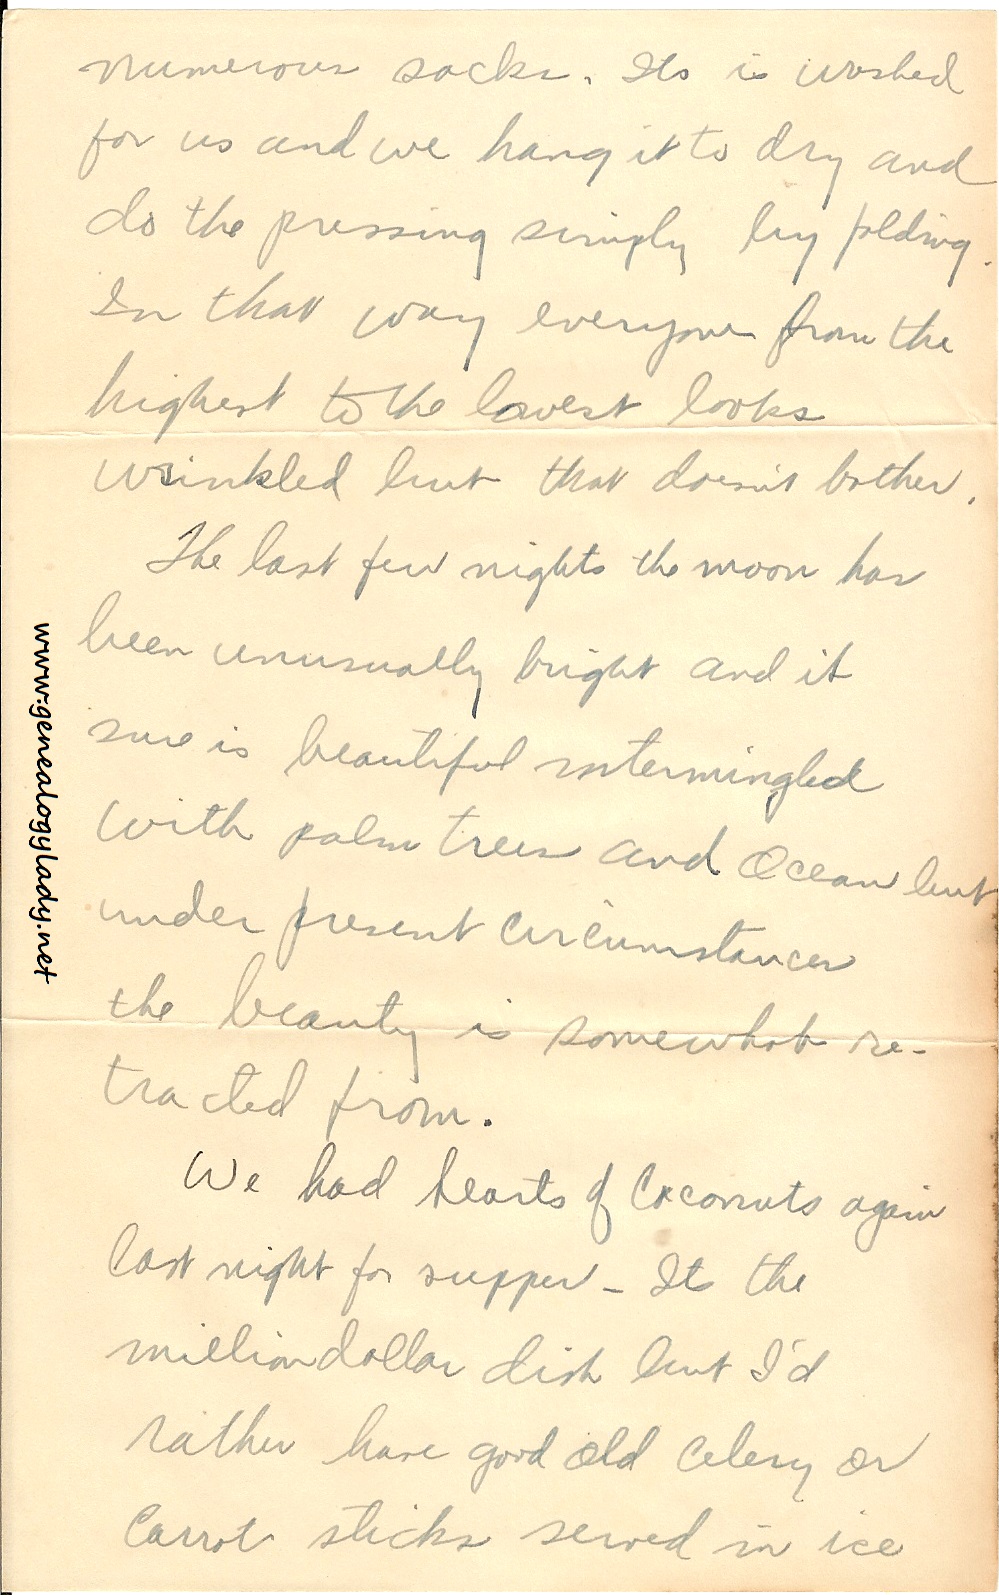 numerous socks. Its is washed
for us and we hang it to dry and
do the pressing simply by folding.
In that way everyone from the
highest to the lowest looks
wrinkled but that doesn't bother.
The last few nights the moon has
been unusually bright and it
sure is beautiful intermingled
with palm trees and Ocean but
under present circumstances
the beauty is somewhat re-
tracted from.
We had hearts of Coconuts again
last night for supper - Its the
million dollar dish but I'd
rather have good old celery or
carrot sticks served in ice
www.genealogylady.net